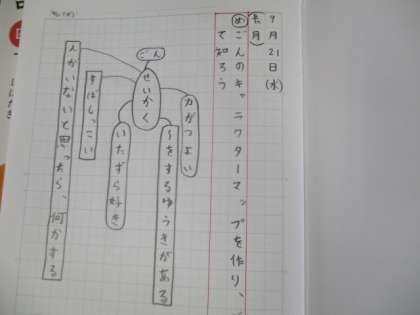 9月21日(水)
長月
めごんのキャラクターマップを作り、
て知ろう
ごん
せいかく
力がつよい
〜をするゆうきがある
いたずら好き
すばしっこい
人がいないと思ったら、何かする